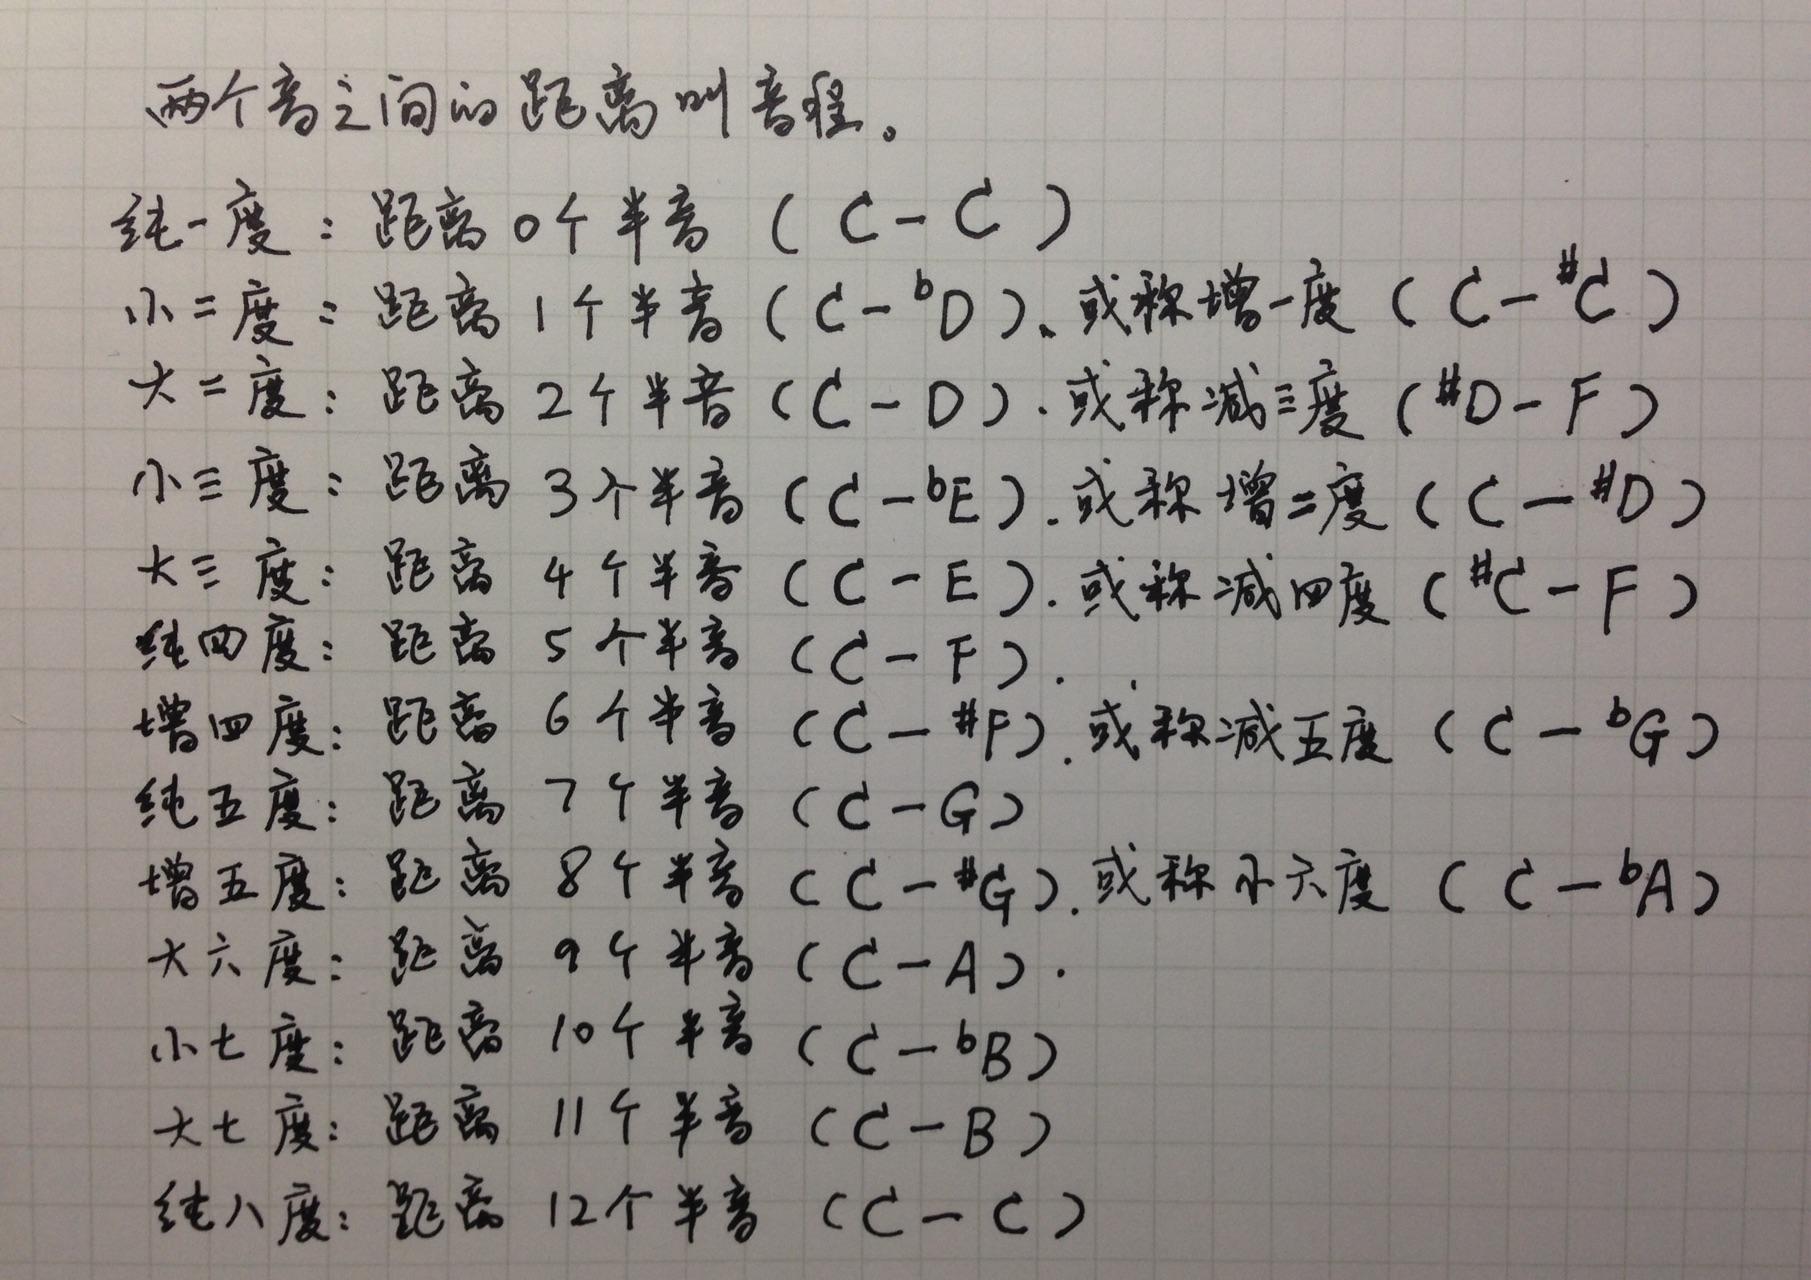 两个音之间的距离叫音程。
纯一度：距离0个半音（C－C）
小二度：距离1个半音（C－bD）、或称增一度（C－#C）
大二度：距离2个半音（C－D）.或称减三度（#D－F）
小三度：距离3个半音（C－bE）.或称增二度（C－#D）
大三度：距离4个半音（C－E）.或称减四度（#C－F）
纯四度：距离5个半音（C－F）.
增四度：距离6个半音（C－#F）.或称减五度（C－bG）
纯五度：距离7个半音（C－G）
增五度：距离8个半音（C－#G）.或称小六度（C－bA）
大六度：距离9个半音（C－A）.
小七度：距离10个半音（C－bB）
大七度：距离11个半音（C－B）
纯八度：距离12个半音（C－C）